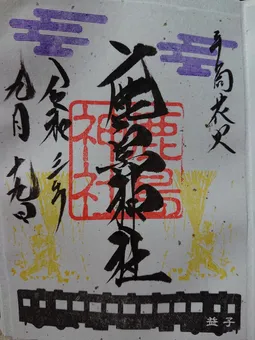 手筒花火
鹿島神社
鹿島
神社
令和三年
九月十九日
益子